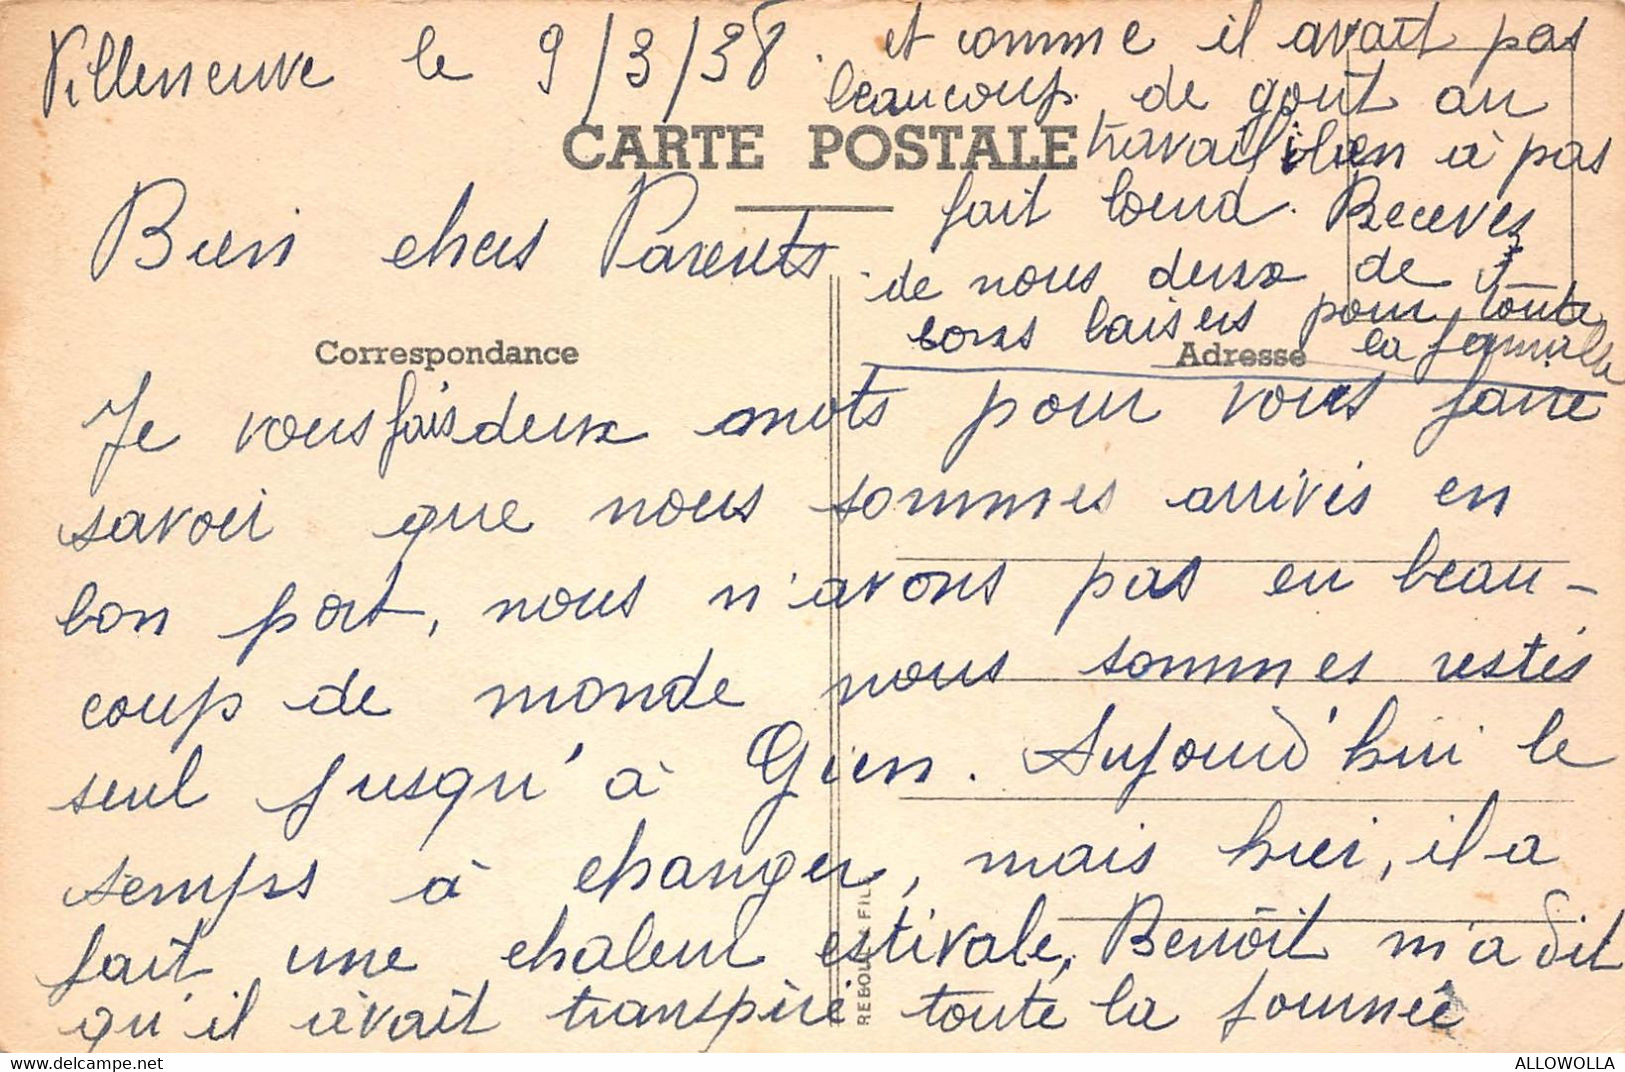 Villeneuve le 9/3/38.
CARTE POSTALE
Bien chers Parents
Correspondance
Adresse
Je vous fais deux mots pour vous faire
savoir que nous sommes arrivés en
bon port, nous n'avons pas eu beau-
coup de monde nous sommes restés
seul jusqu'à Gien. Aujourd'hui le
temps à changer, mais hier, il a
fait une chaleur estivale, Benoît m'a dit
qu'il avait transpiré toute la journée
et comme il avait pas
beaucoup de goût au
travail bien à pas
fait lourd. Recevez
de nous deux de
bons baisers pour toute
la famille
REBOUL & FILS
ALLOWOLLA